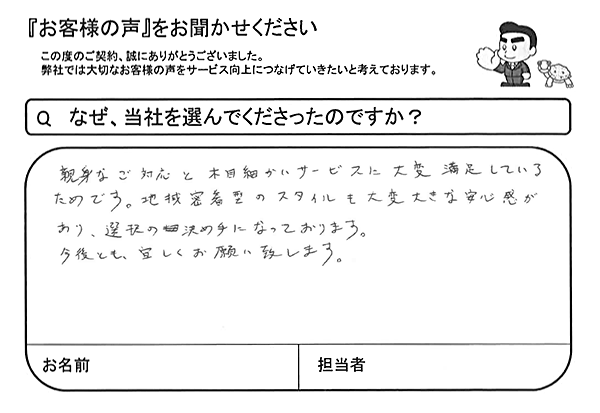 『お客様の声』をお聞かせください
この度のご契約、誠にありがとうございました。
弊社では大切なお客様の声をサービス向上につなげていきたいと考えております。
Q なぜ、当社を選んでくださったのですか？
親身なご対応と木目細かいサービスに大変満足している
ためです。地域密着型のスタイルも大変大きな安心感が
あり、選択の決め手になっております。
今後とも、宜しくお願い致します。
お名前
担当者